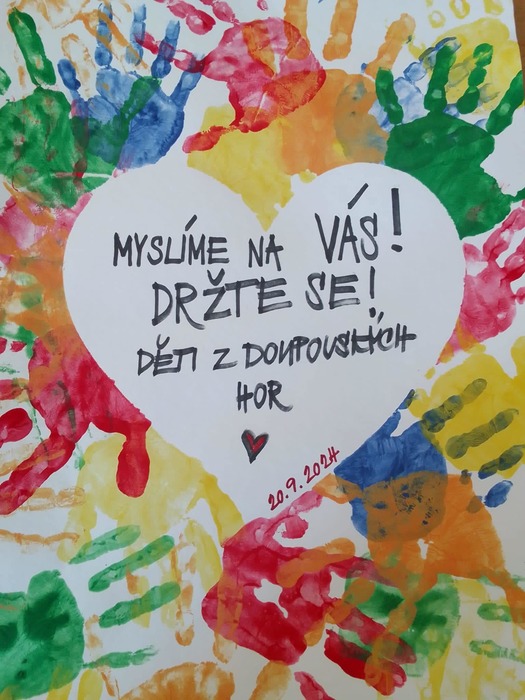 MYSLÍME NA VÁS!
DRŽTE SE!
DĚTI Z DOUPOVSKÝCH
HOR
20.9.2024